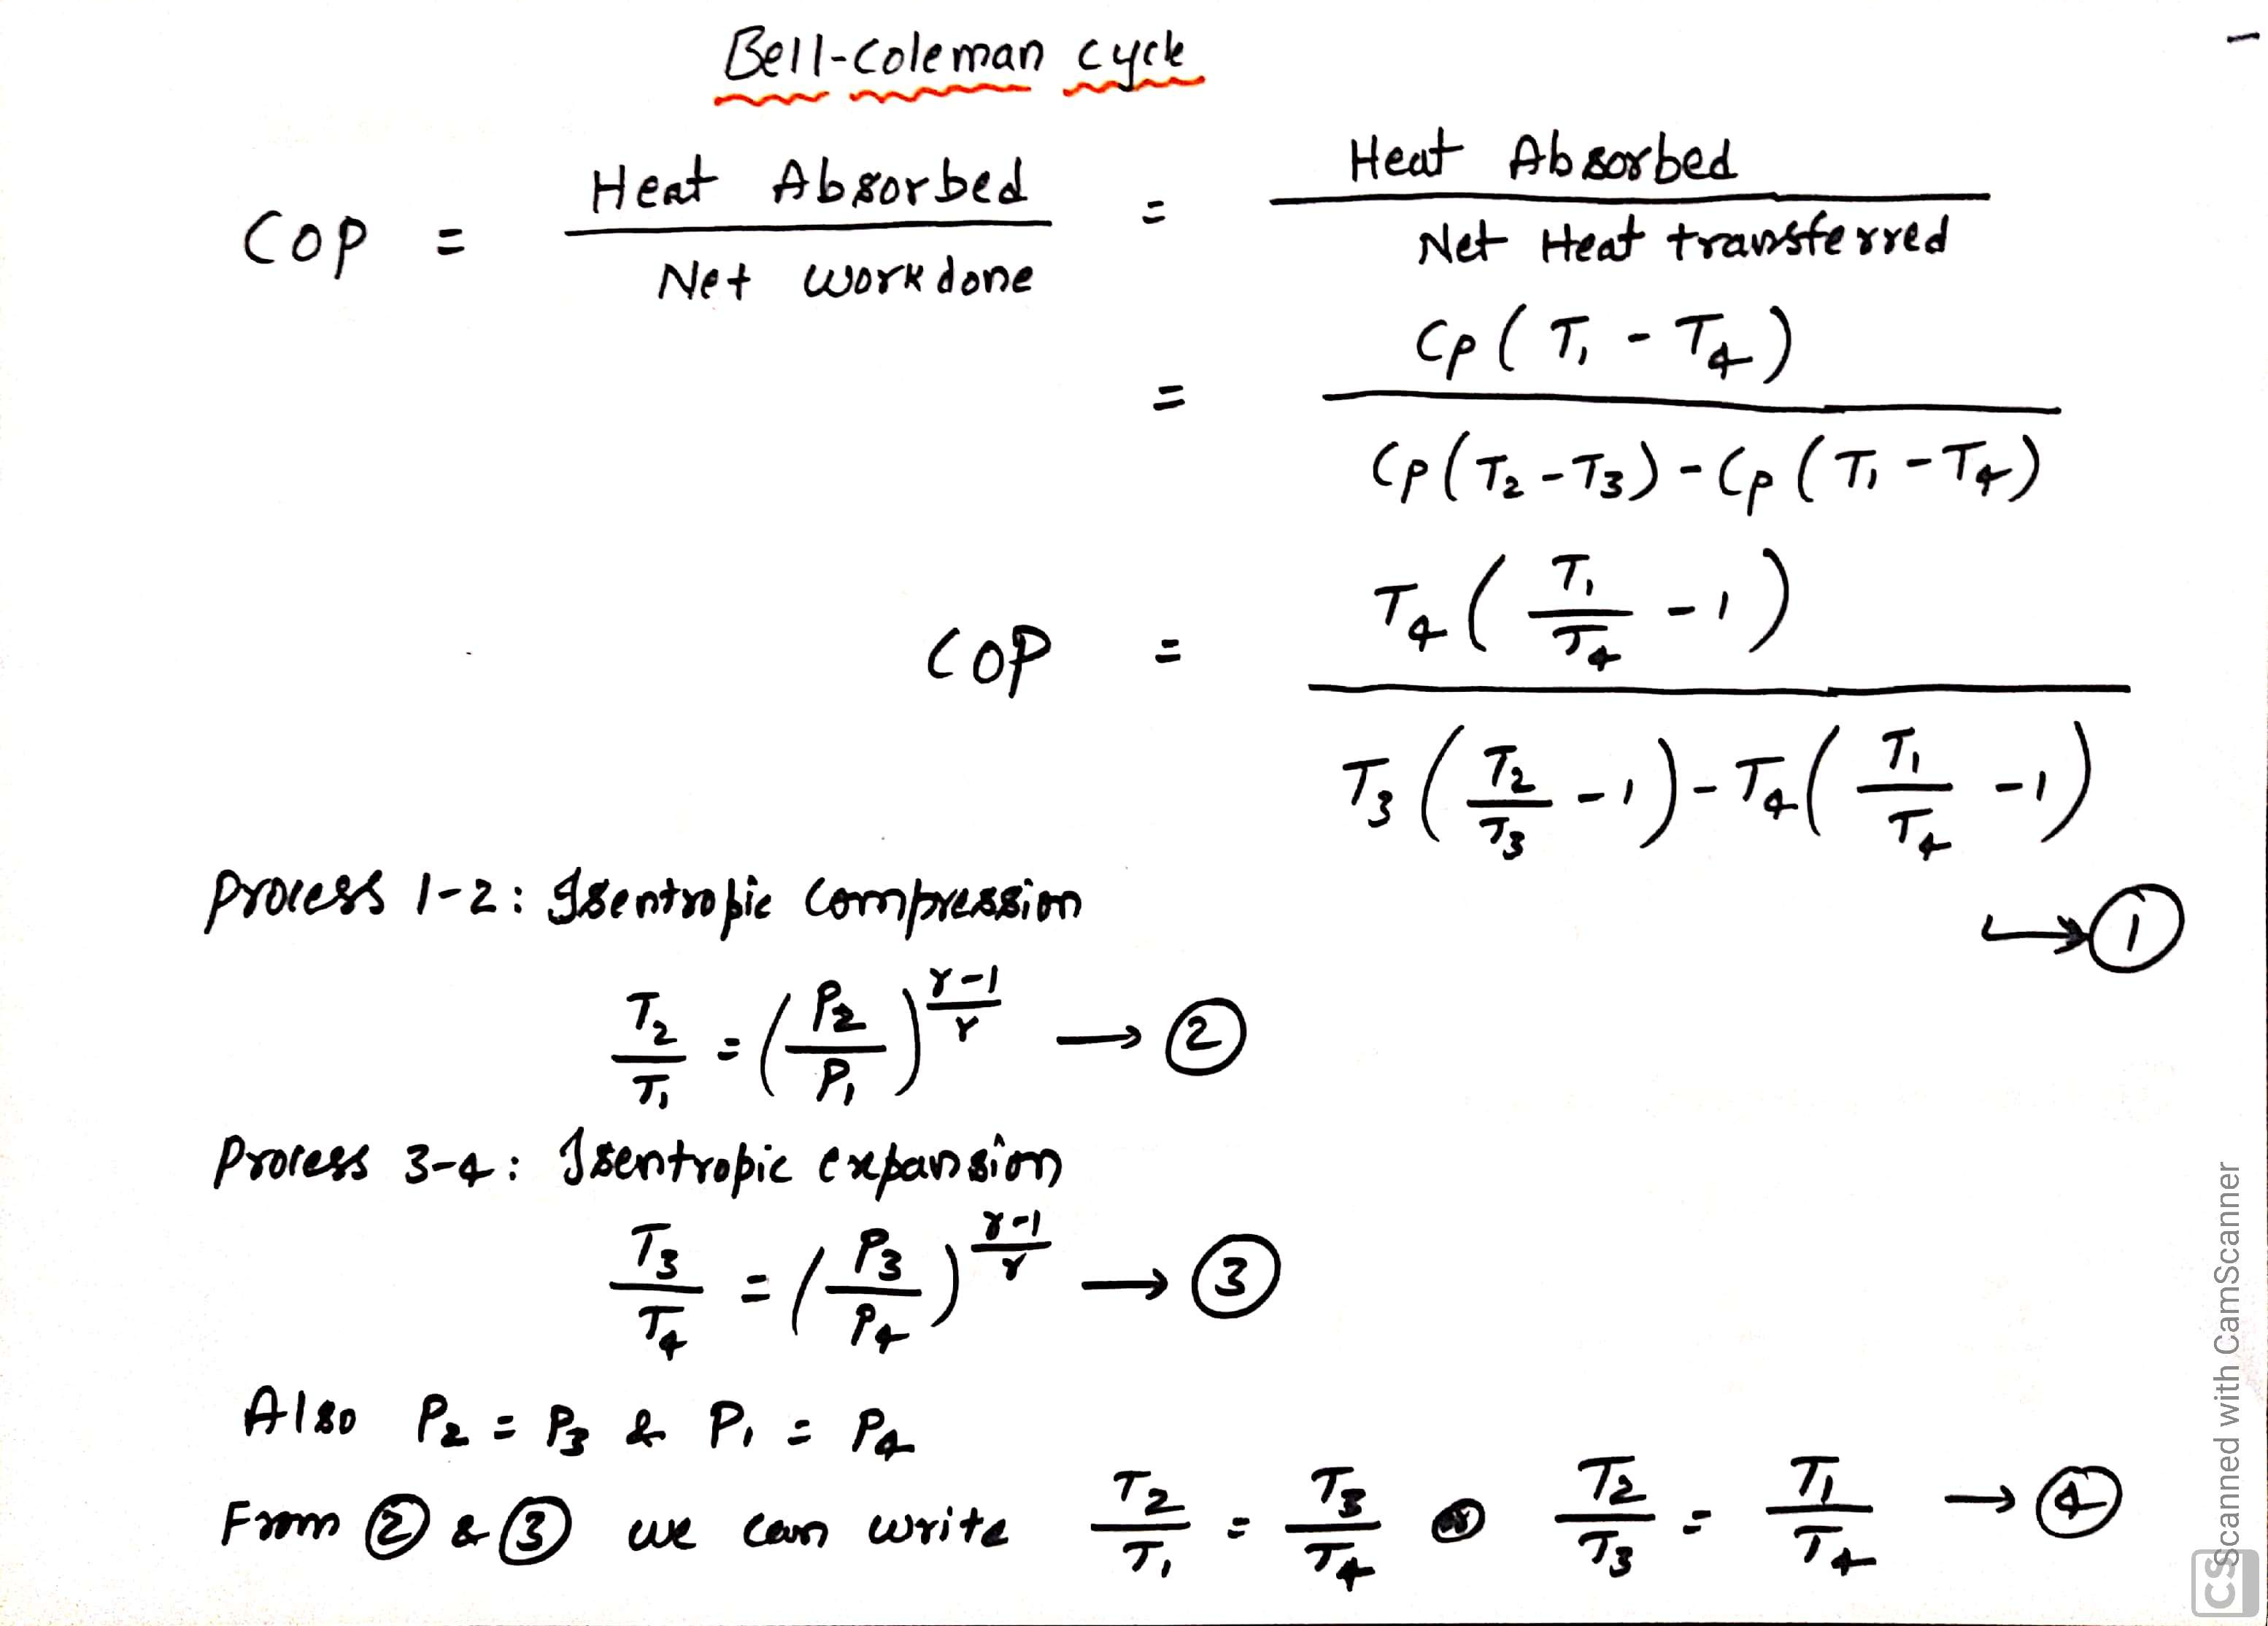 Bell-Coleman cycle
COP = Heat Absorbed / Net workdone = Heat Absorbed / Net Heat transferred
= Cp(T₁ - T₄) / Cp(T₂ - T₃) - Cp(T₁ - T₄)
COP = T₄(T₁/T₄ - 1) / T₃(T₂/T₃ - 1) - T₄(T₁/T₄ - 1)
↳ ①
Process 1-2: Isentropic compression
T₂/T₁ = (P₂/P₁)^(γ-1/γ) → ②
Process 3-4: Isentropic expansion
T₃/T₄ = (P₃/P₄)^(γ-1/γ) → ③
Also P₂ = P₃ & P₁ = P₄
From ② & ③ we can write T₂/T₁ = T₃/T₄ or T₂/T₃ = T₁/T₄ → ④
CS Scanned with CamScanner